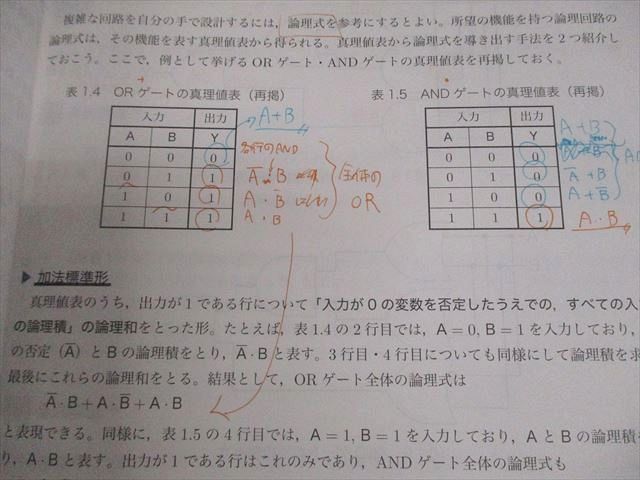 複雑な回路を自分の手で設計するには，論理式を参考にするとよい．所望の機能を持つ論理回路の
論理式は，その機能を表す真理値表から得られる．真理値表から論理式を導き出す手法を2つ紹介し
ておこう．ここで，例として挙げるORゲート・ANDゲートの真理値表を再掲しておく．
+
・
表1.4 ORゲートの真理値表（再掲）
入力 出力
A B Y
0 0 0
0 1 1
1 0 1
1 1 1
A+B
各行のAND
A̅・B
A・B̅
A・B
全体の
OR
表1.5 ANDゲートの真理値表（再掲）
入力 出力
A B Y
0 0 0
0 1 0
1 0 0
1 1 1
A+B
A̅+B
A+B̅
A・B
▶ 加法標準形
真理値表のうち，出力が1である行について「入力が0の変数を否定したうえでの，すべての入
の論理積」の論理和をとった形．たとえば，表1.4の2行目では，A=0, B=1を入力しており，
の否定（A̅）とBの論理積をとり，A̅·Bと表す．3行目・4行目についても同様にして論理積を求
最後にこれらの論理和をとる．結果として，ORゲート全体の論理式は
A̅·B+A·B̅+A·B
と表現できる．同様に，表1.5の4行目では，A=1, B=1を入力しており，AとBの論理積を
り，A·Bと表す．出力が1である行はこれのみであり，ANDゲート全体の論理式も